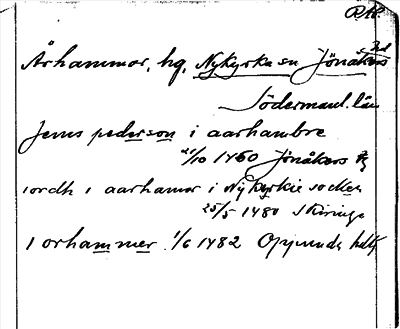 RAP.
Århammar, hg, Nykyrka sn Jönåkers
Södermanl. län
Jenis pederson i aarhambre
21/10 1460 Jönåkers
iordh i aarhamar i Nykyrkie socken
25/5 1480
i orhammer 1/6 1482 Oppunda